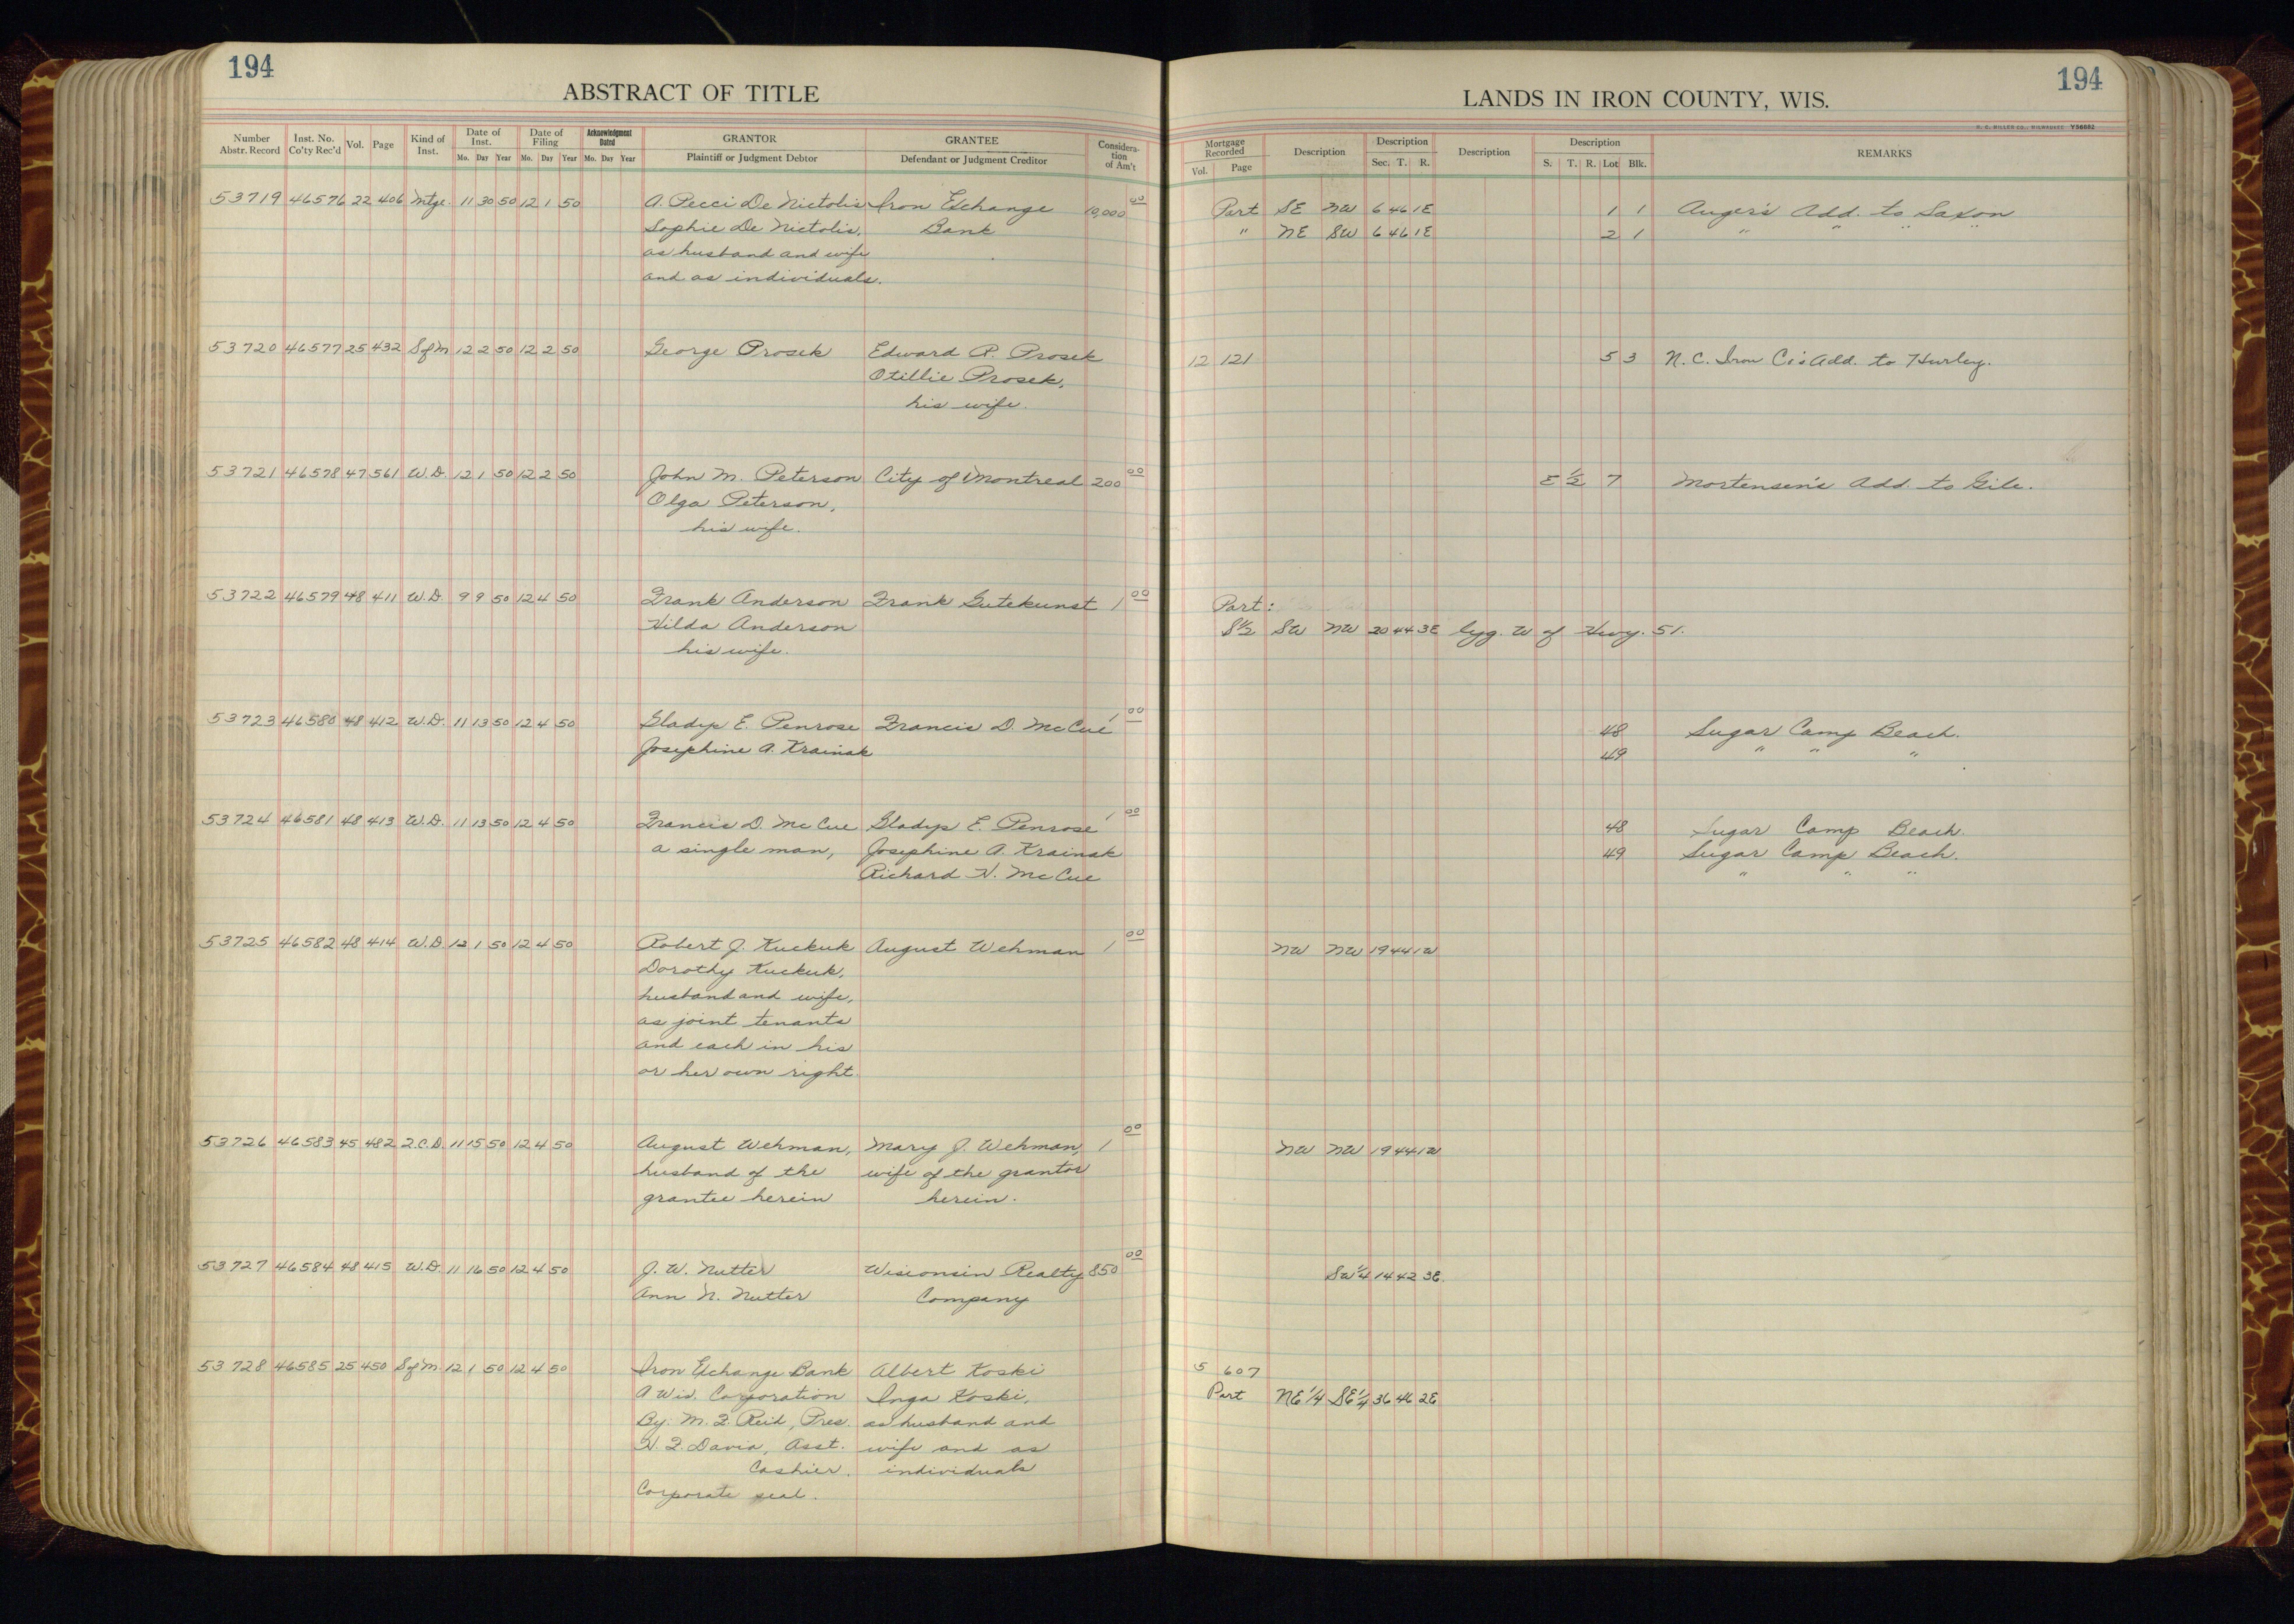 194
ABSTRACT OF TITLE
Number Abstr. Record | Inst. No. Co'ty Rec'd | Vol. | Page | Kind of Inst. | Date of Inst. Mo. Day Year | Date of Filing Mo. Day Year | Acknowledgment Dated Mo. Day Year | GRANTOR Plaintiff or Judgment Debtor | GRANTEE Defendant or Judgment Creditor | Consideration of Am't
53719 46576 22 406 Mtge. 11 30 50 12 1 50 A. Pecci De Nictolis Iron Exchange 10,000 00
Sophie De Nictolis, Bank
as husband and wife
and as individuals.
53720 46577 25 432 S of M 12 2 50 12 2 50 George Prosek Edward R. Prosek
Otillie Prosek,
his wife.
53721 46578 47 561 W.D. 12 1 50 12 2 50 John M. Peterson City of Montreal 200 00
Olga Peterson,
his wife.
53722 46579 48 411 W.D. 9 9 50 12 4 50 Frank Anderson Frank Gutekunst 1 00
Hilda Anderson
his wife.
53723 46580 48 412 W.D. 11 13 50 12 4 50 Gladys E. Penrose Francis D. McCue 1 00
Josephine A. Krainak
53724 46581 48 413 W.D. 11 13 50 12 4 50 Francis D. McCue Gladys E. Penrose 1 00
a single man, Josephine A. Krainak
Richard H. McCue
53725 46582 48 414 W.D. 12 1 50 12 4 50 Robert J. Kuckuk August Wehman 1 00
Dorothy Kuckuk,
husband and wife,
as joint tenants
and each in his
or her own right
53726 46583 45 482 2.C.D. 11 15 50 12 4 50 August Wehman, Mary J. Wehman, 1 00
husband of the wife of the grantor
grantee herein herein.
53727 46584 48 415 W.D. 11 16 50 12 4 50 J. W. Nutter Wisconsin Realty 850 00
Ann N. Nutter Company
53728 46585 25 450 S of M. 12 1 50 12 4 50 Iron Exchange Bank Albert Koski
A Wis. Corporation Inga Koski,
By: M. F. Reid, Pres. as husband and
H. F. Davia, Asst. wife and as
Cashier. individuals
Corporate seal.
194
LANDS IN IRON COUNTY, WIS.
H. C. MILLER CO., MILWAUKEE Y56682
Mortgage Recorded Vol. Page | Description | Description Sec. T. R. | Description | Description S. T. R. Lot Blk. | REMARKS
Part SE NW 6 46 1E 1 1 Auger's Add. to Saxon
" NE SW 6 46 1E 2 1 " " " "
12 121 5 3 N. C. Iron Co's Add. to Hurley.
E 1/2 7 Mortensen's Add. to Gile.
Part:
S1/2 SW NW 20 44 3E lyg. W of Hwy. 51.
48 Sugar Camp Beach.
49 " " "
48 Sugar Camp Beach.
49 Sugar Camp Beach.
" " "
NW NW 19 44 1W
NW NW 19 44 1W
SW1/4 14 42 3E
5 607
Part NE 1/4 SE 1/4 36 46 2E